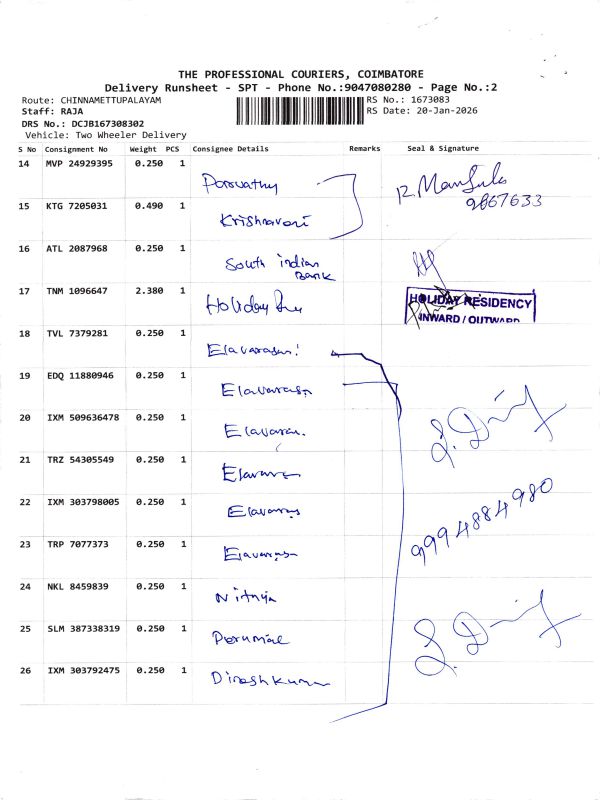 THE PROFESSIONAL COURIERS, COIMBATORE
Delivery Runsheet - SPT - Phone No.:9047080280 - Page No.:2
Route: CHINNAMETTUPALAYAM
Staff: RAJA
DRS No.: DCJB167308302
Vehicle: Two Wheeler Delivery
RS No.: 1673083
RS Date: 20-Jan-2026
S No Consignment No Weight PCS Consignee Details Remarks Seal & Signature
14 MVP 24929395 0.250 1 Poovathy R. Manjula
9867633
15 KTG 7205031 0.490 1 Krishnaveni
16 ATL 2087968 0.250 1 South indian
Bank
17 TNM 1096647 2.380 1 Holiday HOLIDAY RESIDENCY
INWARD / OUTWARD
18 TVL 7379281 0.250 1 Elavarasan
19 EDQ 11880946 0.250 1 Elavarasn
20 IXM 509636478 0.250 1 Elavaran.
21 TRZ 54305549 0.250 1 Elavaras
22 IXM 303798005 0.250 1 Elavaras
23 TRP 7077373 0.250 1 Elavarasn
9994884980
24 NKL 8459839 0.250 1 Nithya
25 SLM 387338319 0.250 1 Perumal
26 IXM 303792475 0.250 1 Dineshkumar